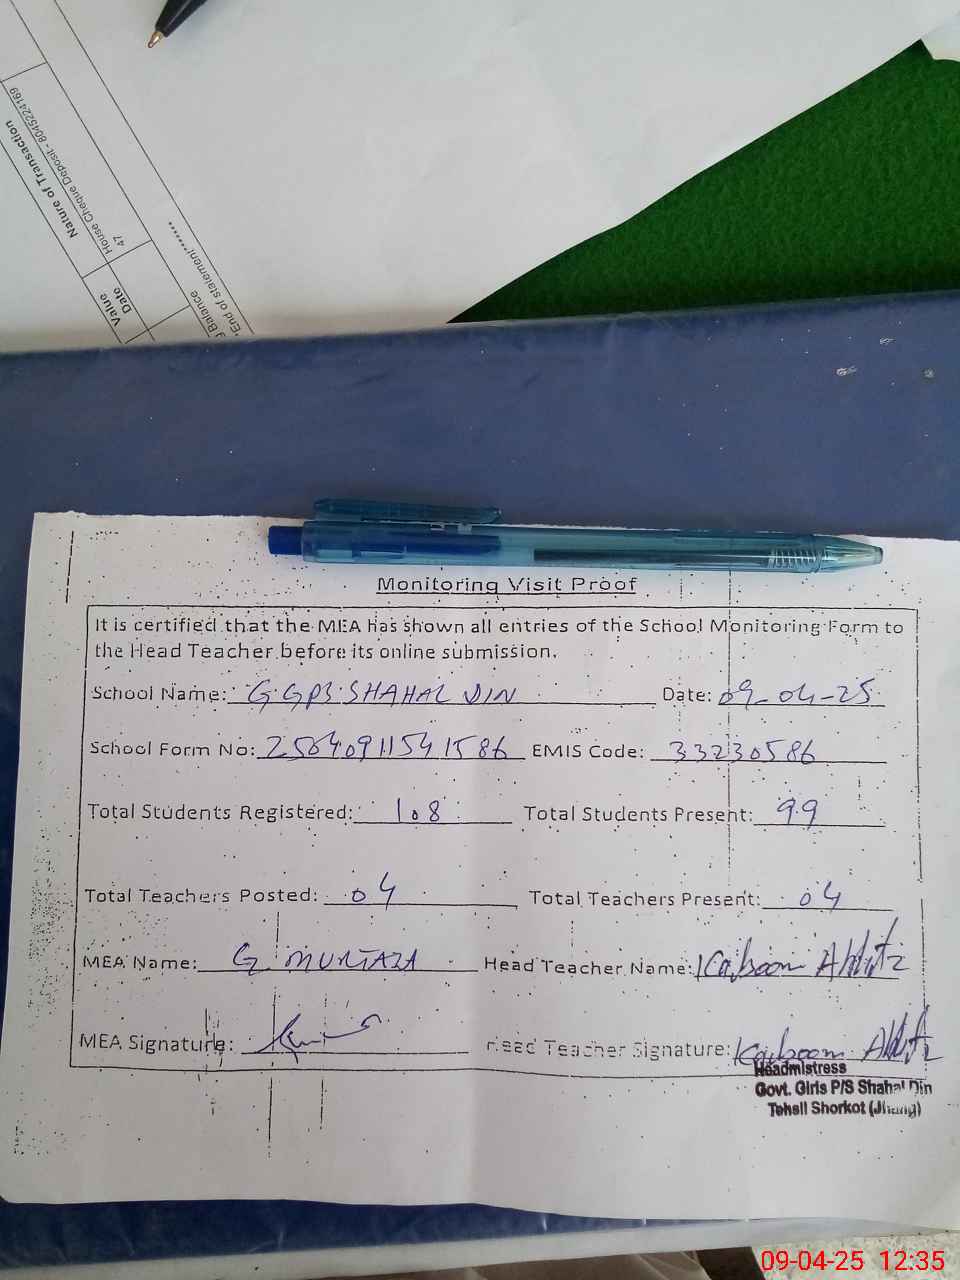 Nature of Transaction
House Cheque Deposit - 8045224169
47
Value
Date
g Balance
*End of statement*
Monitoring Visit Proof
It is certified that the MEA has shown all entries of the School Monitoring Form to
the Head Teacher before its online submission.
School Name: G.GPS SHAHAL DIN Date: 09-04-25
School Form No: 25040911541586 EMIS Code: 33230586
Total Students Registered: 108 Total Students Present: 99
Total Teachers Posted: 04 Total Teachers Present: 04
MEA Name: G MURTAZA Head Teacher Name:
MEA Signature: Head Teacher Signature:
Headmistress
Govt. Girls P/S Shahal Din
Tehsil Shorkot (Jhang)
09-04-25 12:35